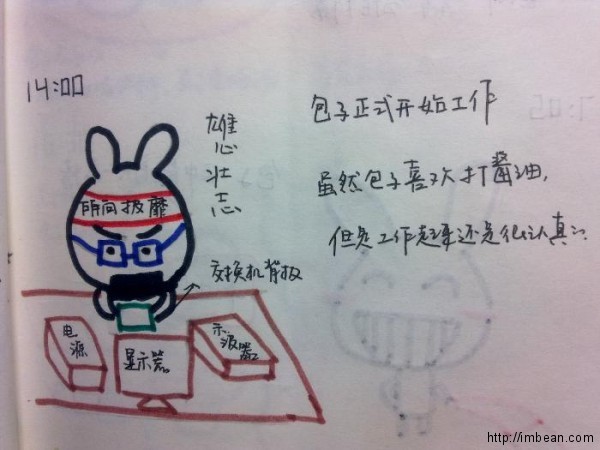 14:00
雄
心
壮
志
所向披靡
交换机背板
电
源
显示器
示
波
器
包子正式开始工作
虽然包子喜欢打酱油,
但是工作起来还是很认真
http://imbean.com